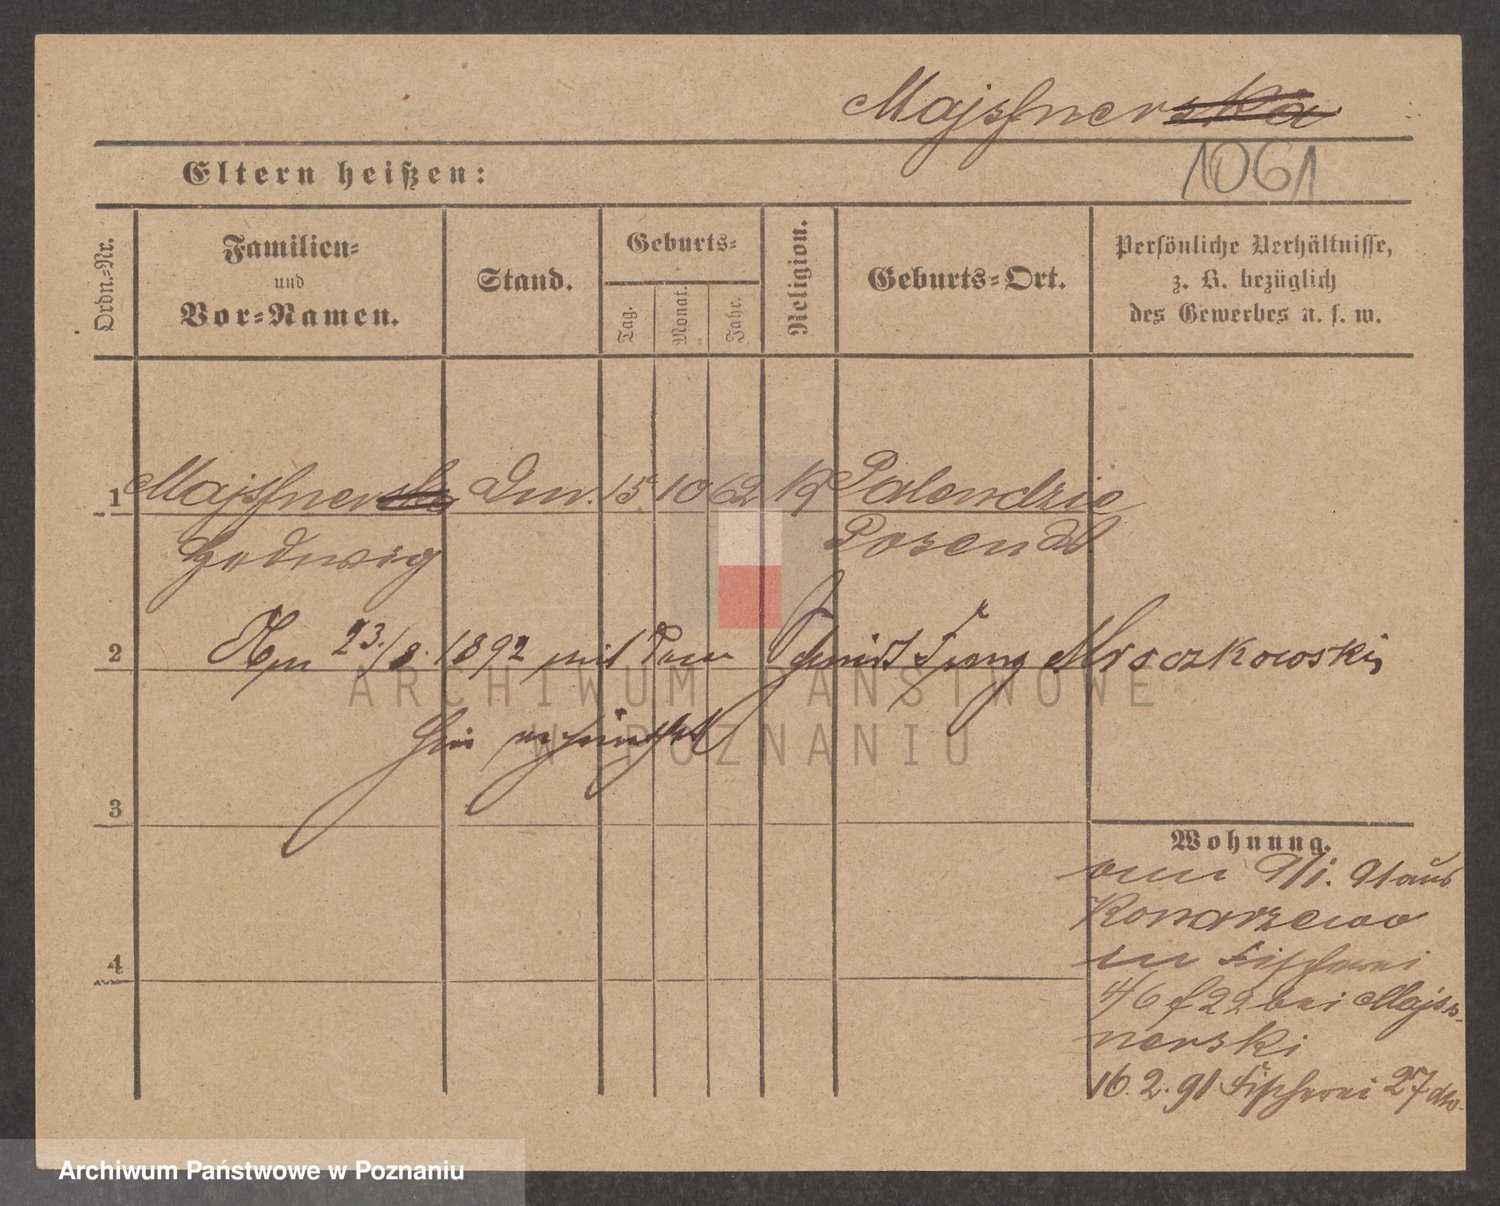 Majssnerska
1061
Eltern heißen:
Ordn.-Nr.
Familien-
und
Vor-Namen.
Stand.
Geburts-
Tag.
Monat.
Jahr.
Religion.
Geburts-Ort.
Persönliche Verhältnisse,
z. B. bezüglich
des Gewerbes u. s. w.
1 Majssnerska 15 10 62 K Palendzie
Hedwig Posen
2 Am 23./8. 1892 mit dem Schmidt Franz Mroczkowski
hier
3
Wohnung.
am 9/1. 91 aus
Konarzewo
4
in Fischerei
4/6 22 bei Majss-
nerski
16. 2. 91 Fischerei 27 dto.
ARCHIWUM PAŃSTWOWE
W POZNANIU
Archiwum Państwowe w Poznaniu